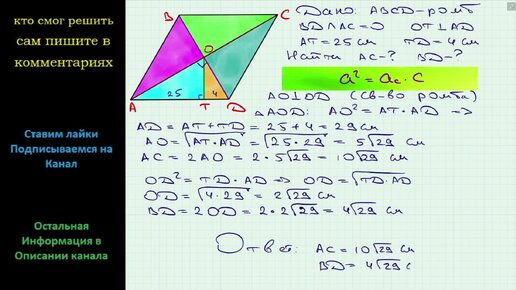 кто смог решить
сам пишите в
комментариях
Ставим лайки
Подписываемся на
Канал
Остальная
Информация в
Описании канала
B
C
O
25
4
A
T
D
Дано: ABCD – ромб
BD ∩ AC = O OT ⊥ AD
AT = 25 см TD = 4 см
Найти AC – ? BD – ?
a² = ac · c
AO ⊥ OD (св-во ромба)
△AOD: AO² = AT · AD ⇒
AD = AT + TD = 25 + 4 = 29 см
AO = √AT · AD = √25 · 29 = 5√29 см
AC = 2AO = 2 · 5√29 = 10√29 см
OD² = TD · AD ⇒ OD = √TD · AD
OD = √4 · 29 = 2√29 см
BD = 2OD = 2 · 2√29 = 4√29 см
Ответ: AC = 10√29 см
BD = 4√29 с